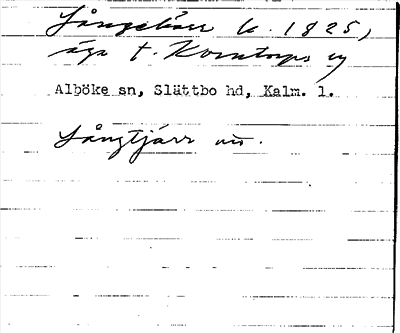 Långekärr k. 1825,
äga t. Korntorps by
Alböke sn, Slättbo hd, Kalm. l.
Långtjärr uis.